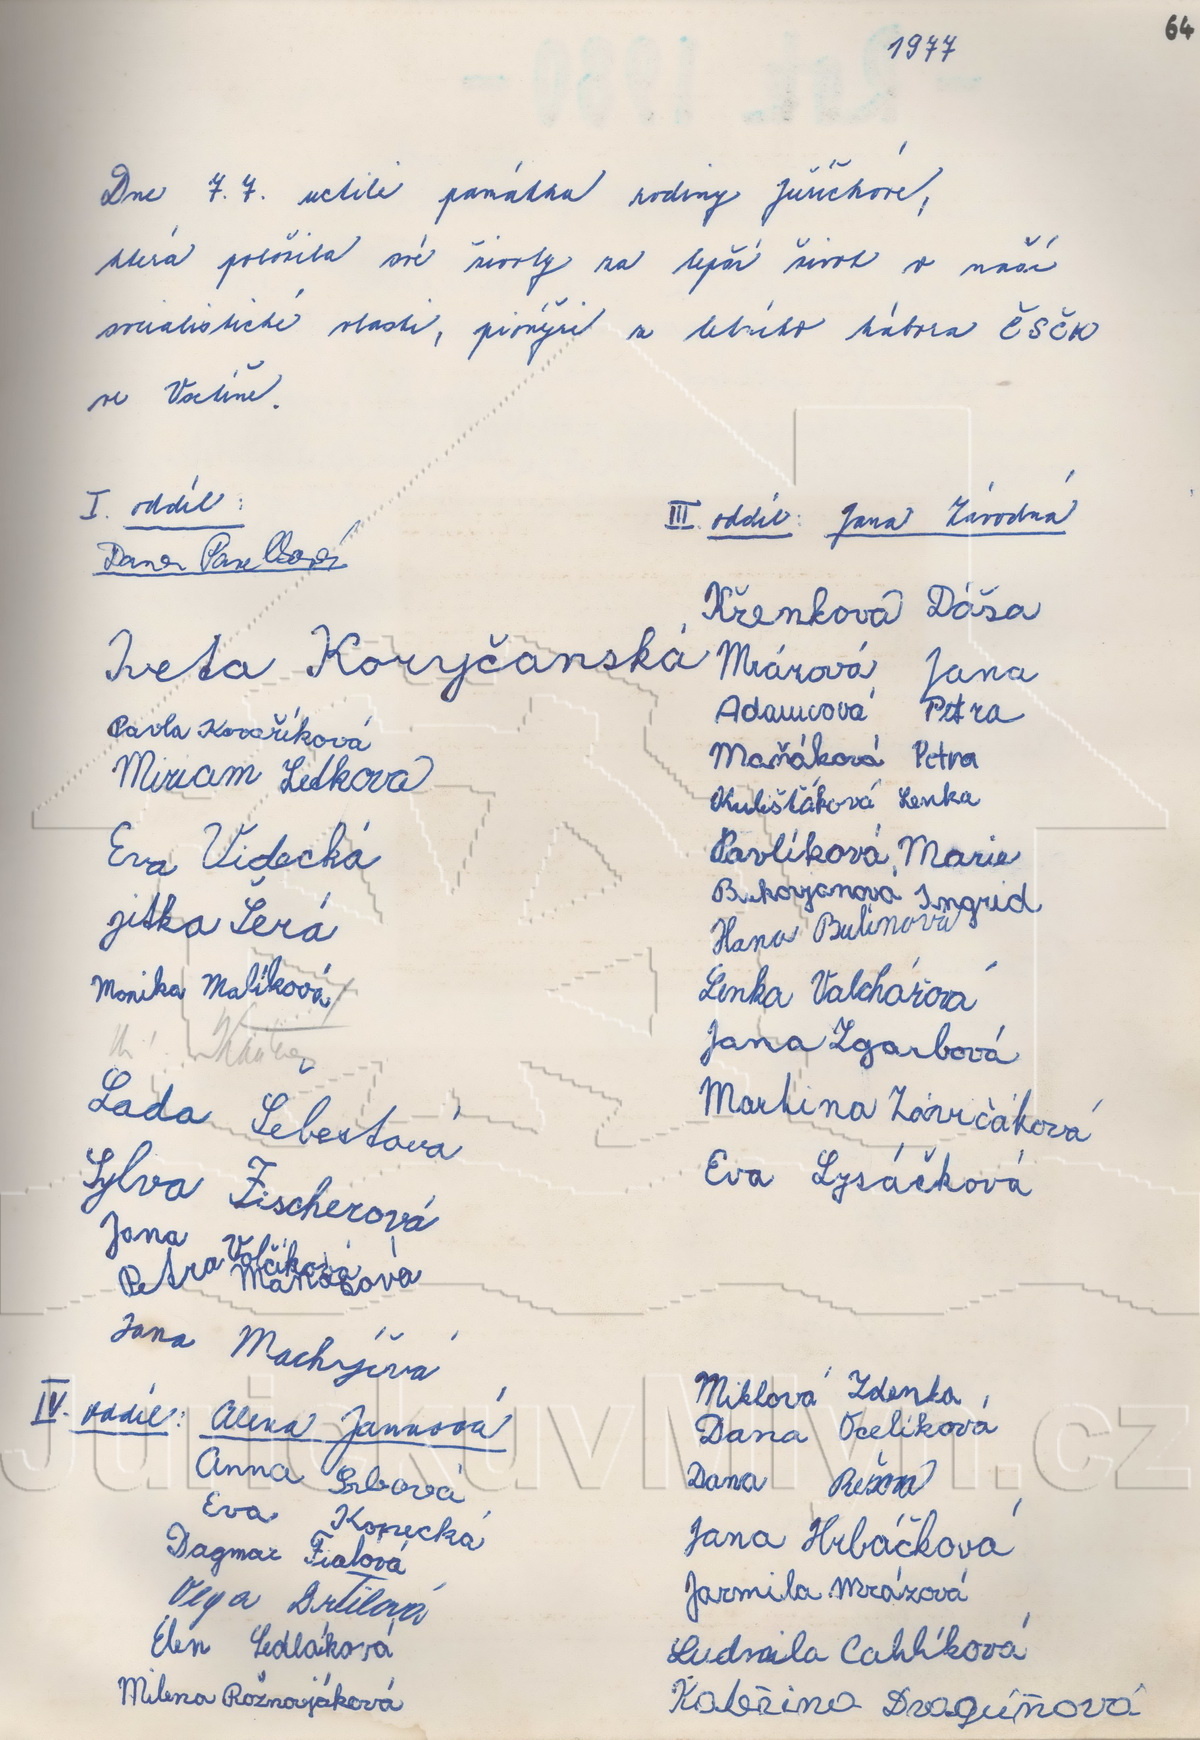 64
1977
Dne 7.7. uctili památku rodiny Juříčkové,
která položila své životy za lepší život v naší
socialistické vlasti, pionýři z letního tábora ČSČK
ve Vsetíně.
I. oddíl:
Dana Pavelková
Iveta Koryčanská
Pavla Kovaříková
Miriam Letková
Eva Videcká
jitka Šerá
Monika Malíková
Lada Šebestová
Sylva Fischerová
Jana Volčíková
Petra Manásová
Jana
III oddíl: Jana Závodná
Křenková Dáša
Mrázová Jana
Adamcová Petra
Maňáková Petra
Kulišťáková Lenka
Pavlíková Marie
Ingrid
Hana Bulínová
Lenka Valchářová
Jana Zgarbová
Martina Závrčáková
Eva Lysáčková
IV. oddíl: Alena Janusová
Anna Srbová
Eva Konecká
Dagmar Fialová
Olga Brtilová
Elen Sedláková
Milena Rožnovjáková
Miklová Zdenka
Dana Ocelíková
Dana
Jana Hrbáčková
Jarmila Mrázová
Ludmila Cahlíková
Kateřina Dragúňová
JurickuvMlyn.cz